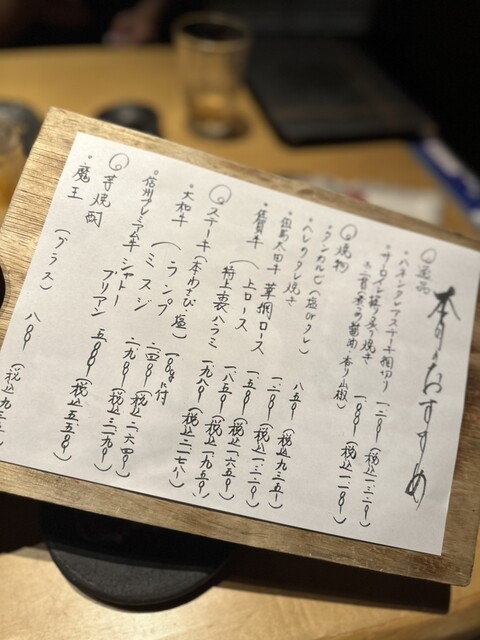 本日のおすすめ
○逸品
・ハネシタレアステーキ 厚切り 一二〇〇 (税込一三二〇)
・サーロイン炙り焼き 一〇〇〇 (税込一一〇〇)
(醤油・香り山椒)
○焼物
・タンカルビ (塩orタレ) 八五〇 (税込九三五)
・ヘレタレ焼き 一二〇〇 (税込一三二〇)
・但馬太田牛 草掴ロース 一五〇〇 (税込一六五〇)
・佐賀牛 (上ロース 一八五〇
(特上裏ハラミ 一九八〇 (税込二一七八)
○ステーキ (本わさび・塩) 100g付
・大和牛 (ランプ 二四〇〇 (税込二六四〇)
(ミスジ 二九〇〇 (税込三一九〇)
・信州プレミアム牛 シャトーブリアン 五〇〇〇 (税込五五〇〇)
○芋焼酎
・魔王 (グラス) 八〇〇